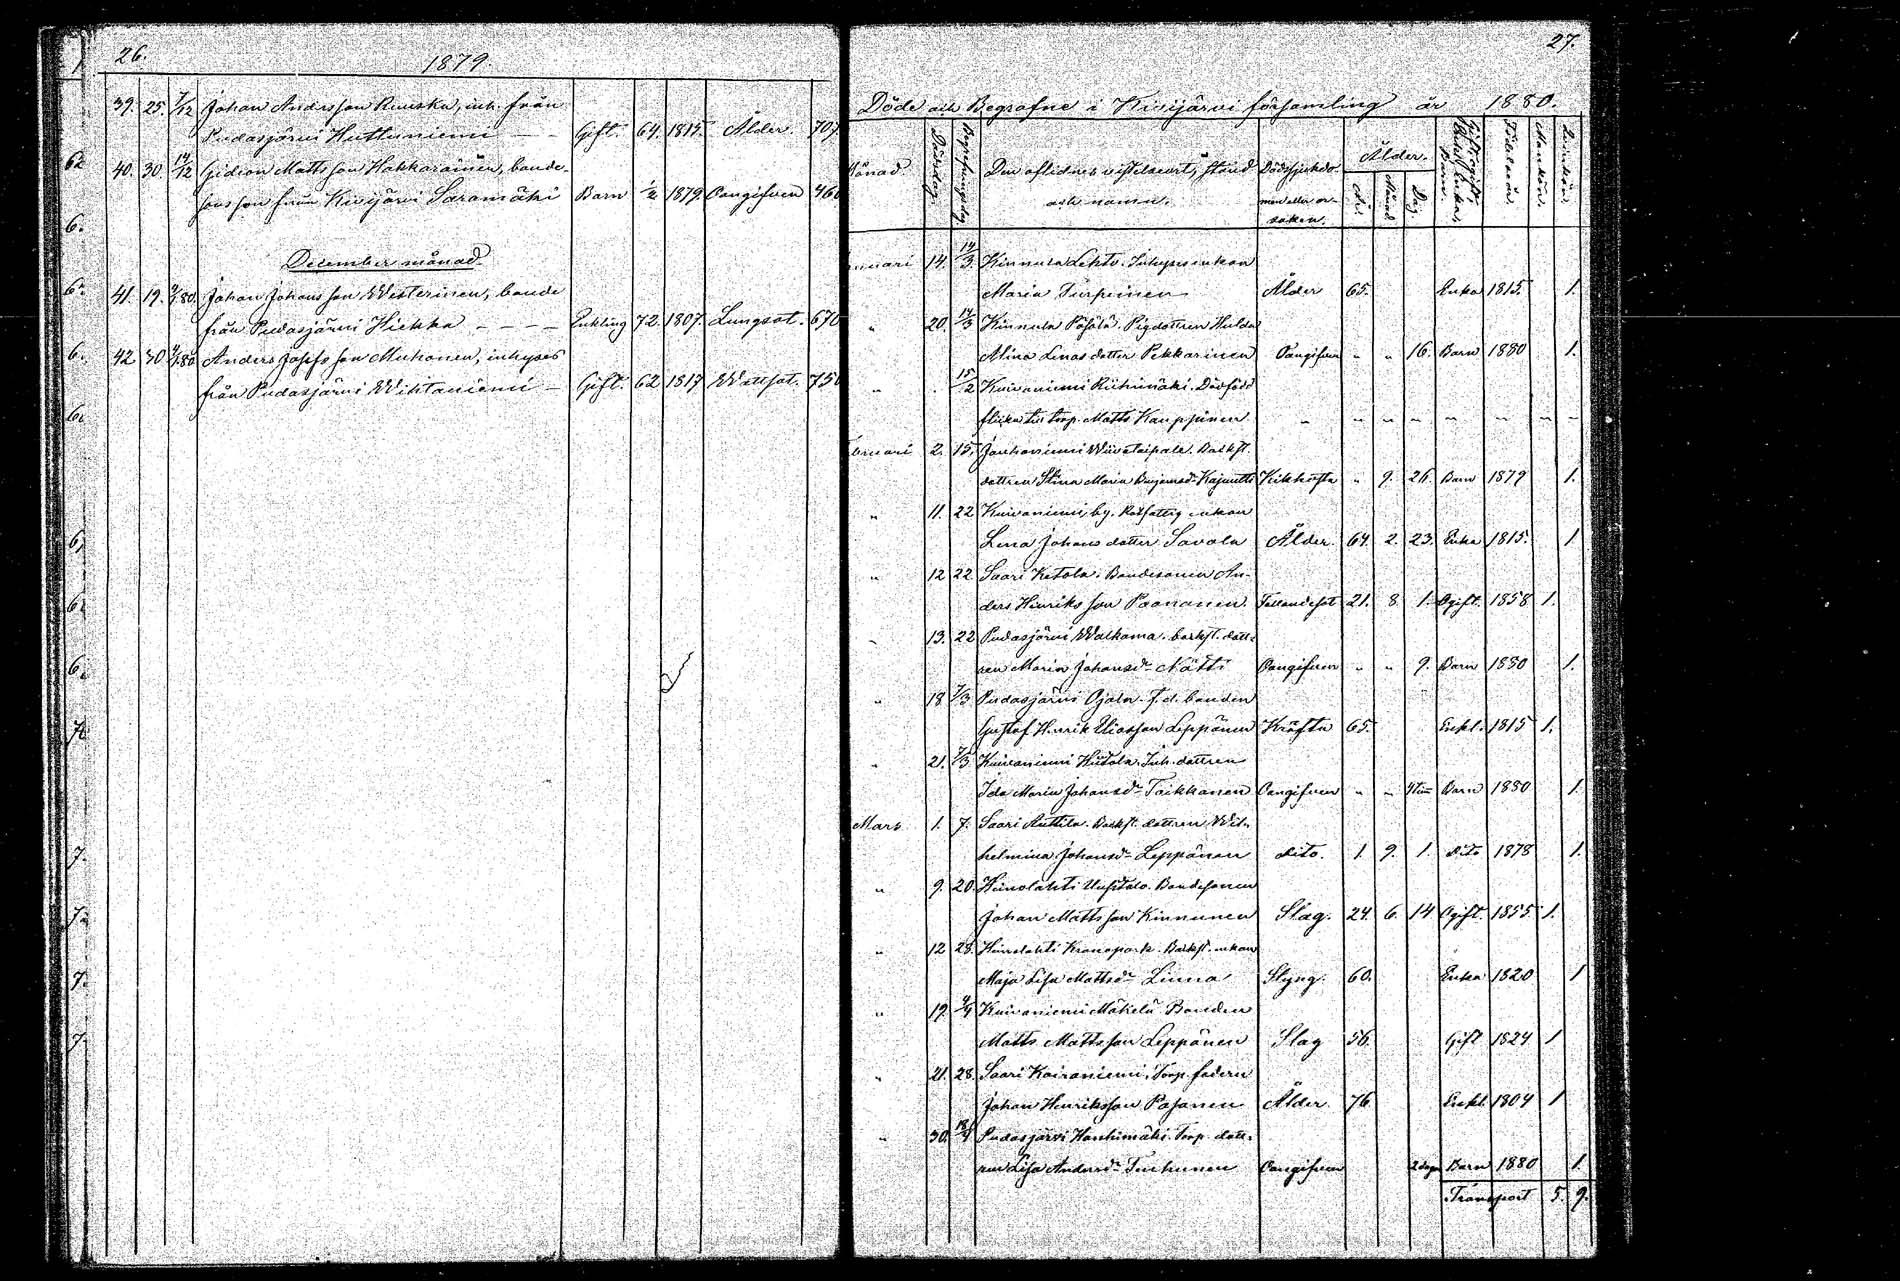 26.
1879.
39. 25. 7/12 Johan Andersson Ruuska, inh. från
Pudasjärvi Huttuniemi — — Gift. 64. 1815. Ålder. 707
40. 30. 14/12 Gideon Mattsson Hakkarainen, bonde-
sonson från Kivijärvi Saramäki Barn 1/2 1879. Oangifven 460
December månad
41. 19. Johan Johansson Westerinen, bonde
från Pudasjärvi Hiekka — — — — Enkling 72. 1807. Lungsot. 670
42 30 Anders Josefsson Muhonen, inhyses
från Pudasjärvi Wiitaniemi — Gift. 62 1817 Wattsot. 750
27.
Döde och Begrafne i Kivijärvi församling år 1880.
Månad Dödsdag. Begrafningsdag. Den aflidnes vistelseort, stånd och namn. Dödssjukdomen eller orsaken. Ålder. År. Månad Dag Födelseår. Mankön. Qvinkön.
14. 14/3. Kinnula Lehto. Inhysesenkan
Maria Turpeinen Ålder 65. Enka 1815. 1.
" 20. 14/3 Kinnula Pösölä. Pigdottren Hulda
Alina Lenasdotter Pekkarinen Oangifven " " 16. Barn 1880 1.
" 15/2 Kuivaniemi Riihimäki. Dödfödd
flicka till torp. Matts Kauppinen " " " " " " " "
2. 15. Jauhoniemi Wiivataipale. Backst.
dottren Stina Maria Kikhosta " 9. 26. Barn 1879 1.
" 11. 22 Kuivaniemi by. Rotfattig enkan
Lena Johansdotter Savola Ålder. 64. 2. 23. Enka 1815. 1
" 12 22 Saari Ketola. Bondesonen An-
ders Henriksson Paananen. Fallandesot 21. 8 1. Ogift. 1858 1.
" 13. 22 Pudasjärvi Walkama. backst. dott-
ren Maria Johansdr Nätti Oangifven " " 9. Barn 1880 1.
" 18 7/3 Pudasjärvi Ojala. f.d. bonden
Gustaf Henrik Eliasson Leppänen Kräfta 65. Enkl. 1815 1.
" 21. 7/3 Kuivaniemi Hiitola. Inh. dottren
Ida Maria Johansdr Taikkanen Oangifven " " Barn 1880 1
Mars 1. 7. Saari Anttila. Backst. dottren Wil-
helmina Johansdr Leppänen dito. 1. 9. 1. dito 1878 1.
" 9. 20. Heinolahti Uusitalo. Bondesonen
Johan Mattsson Kinnunen Slag. 24. 6. 14 Ogift. 1855 1.
" 12 28. Heinolahti Kronopark. Backst. enkan
Maja Lisa Mattsdr Linna Styng. 60. Enka 1820 1
" 19. 4/4 Kuivaniemi Mäkelä Bonden
Matts Mattsson Leppänen Slag 56. Gift 1824 1
" 21. 28. Saari Koiraniemi. Torp. fadern
Johan Henriksson Pasanen Ålder. 76 Enkl. 1804 1
" 30. 18/4 Pudasjärvi Hanhimäki. Torp. dott-
ren Lisa Andersdr Turhunen Oangifven 2 dagar Barn 1880 1.
Transport 5. 9.